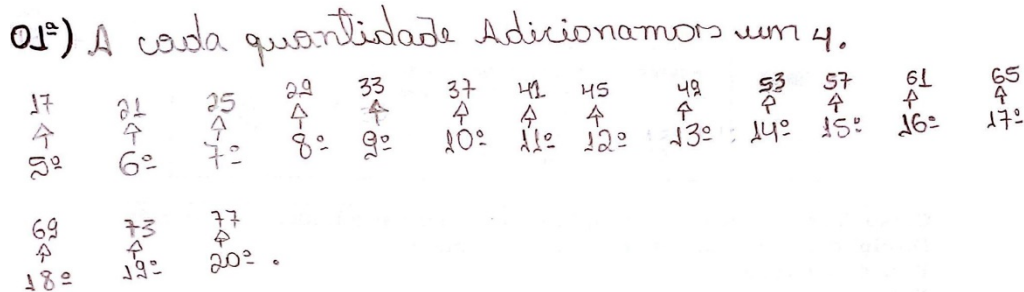 01ª) A cada quantidade Adicionamos um 4.
17 21 25 29 33 37 41 45 49 53 57 61 65
5º 6º 7º 8º 9º 10º 11º 12º 13º 14º 15º 16º 17º
69 73 77
18º 19º 20º .